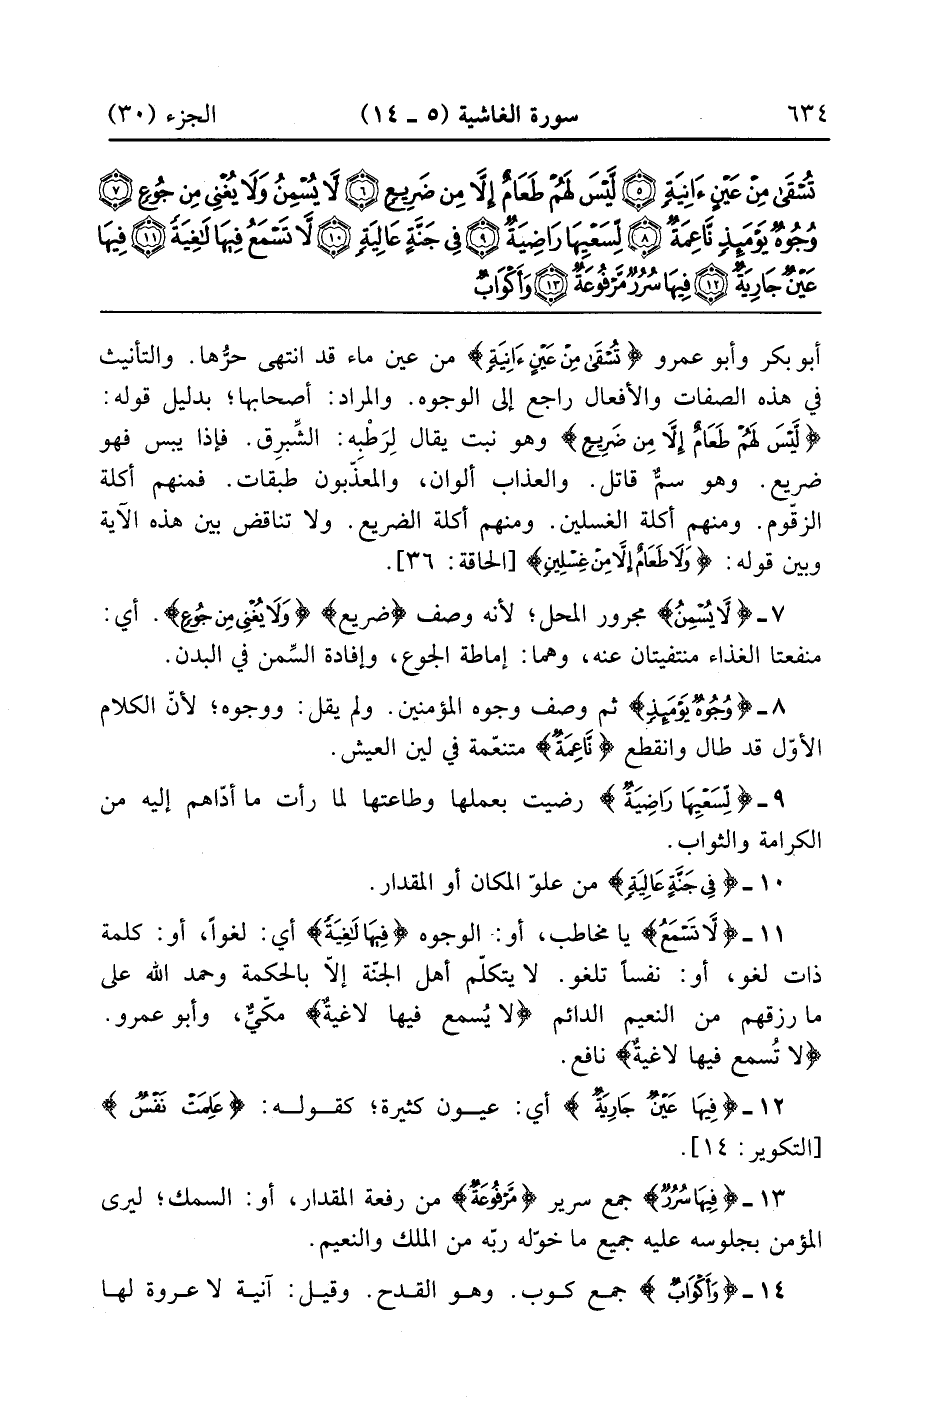 ٦٣٤ سورة الغاشية (٥ ـ ١٤) الجزء (٣٠)
تُسْقَىٰ مِنْ عَيْنٍ ءَانِيَةٍ ۝٥ لَّيْسَ لَهُمْ طَعَامٌ إِلَّا مِن ضَرِيعٍ ۝٦ لَّا يُسْمِنُ وَلَا يُغْنِى مِن جُوعٍ ۝٧
وُجُوهٌ يَوْمَئِذٍ نَّاعِمَةٌ ۝٨ لِّسَعْيِهَا رَاضِيَةٌ ۝٩ فِى جَنَّةٍ عَالِيَةٍ ۝١٠ لَّا تَسْمَعُ فِيهَا لَٰغِيَةً ۝١١ فِيهَا
عَيْنٌ جَارِيَةٌ ۝١٢ فِيهَا سُرُرٌ مَّرْفُوعَةٌ ۝١٣ وَأَكْوَابٌ
أبو بكر وأبو عمرو ﴿تُسْقَىٰ مِنْ عَيْنٍ ءَانِيَةٍ﴾ من عين ماء قد انتهى حرُّها. والتأنيث
في هذه الصفات والأفعال راجع إلى الوجوه. والمراد: أصحابها؛ بدليل قوله:
﴿لَّيْسَ لَهُمْ طَعَامٌ إِلَّا مِن ضَرِيعٍ﴾ وهو نبت يقال لِرَطْبِه: الشِّبرِق. فإذا يبس فهو
ضريع. وهو سمٌّ قاتل. والعذاب ألوان، والمعذّبون طبقات. فمنهم أكلة
الزقّوم. ومنهم أكلة الغسلين. ومنهم أكلة الضريع. ولا تناقض بين هذه الآية
وبين قوله: ﴿وَلَا طَعَامٌ إِلَّا مِنْ غِسْلِينٍ﴾ [الحاقة: ٣٦].
٧ ـ ﴿لَّا يُسْمِنُ﴾ مجرور المحل؛ لأنه وصف ﴿ضريع﴾ ﴿وَلَا يُغْنِى مِن جُوعٍ﴾. أي:
منفعتا الغذاء منتفيتان عنه، وهما: إماطة الجوع، وإفادة السِّمن في البدن.
٨ ـ ﴿وُجُوهٌ يَوْمَئِذٍ﴾ ثم وصف وجوه المؤمنين. ولم يقل: ووجوه؛ لأنّ الكلام
الأوّل قد طال وانقطع ﴿نَّاعِمَةٌ﴾ متنعّمة في لين العيش.
٩ ـ ﴿لِّسَعْيِهَا رَاضِيَةٌ﴾ رضيت بعملها وطاعتها لما رأت ما أدّاهم إليه من
الكرامة والثواب.
١٠ ـ ﴿فِى جَنَّةٍ عَالِيَةٍ﴾ من علوّ المكان أو المقدار.
١١ ـ ﴿لَّا تَسْمَعُ﴾ يا مخاطب، أو: الوجوه ﴿فِيهَا لَٰغِيَةً﴾ أي: لغواً، أو: كلمة
ذات لغو، أو: نفساً تلغو. لا يتكلّم أهل الجنّة إلاّ بالحكمة وحمد الله على
ما رزقهم من النعيم الدائم ﴿لا يُسمع فيها لاغيةٌ﴾ مكّيٌّ، وأبو عمرو.
﴿لا تُسمع فيها لاغيةٌ﴾ نافع.
١٢ ـ ﴿فِيهَا عَيْنٌ جَارِيَةٌ﴾ أي: عيون كثيرة؛ كقوله: ﴿عَلِمَتْ نَفْسٌ﴾
[التكوير: ١٤].
١٣ ـ ﴿فِيهَا سُرُرٌ﴾ جمع سرير ﴿مَّرْفُوعَةٌ﴾ من رفعة المقدار، أو: السمك؛ ليرى
المؤمن بجلوسه عليه جميع ما خوّله ربّه من الملك والنعيم.
١٤ ـ ﴿وَأَكْوَابٌ﴾ جمع كوب. وهو القدح. وقيل: آنية لا عروة لها